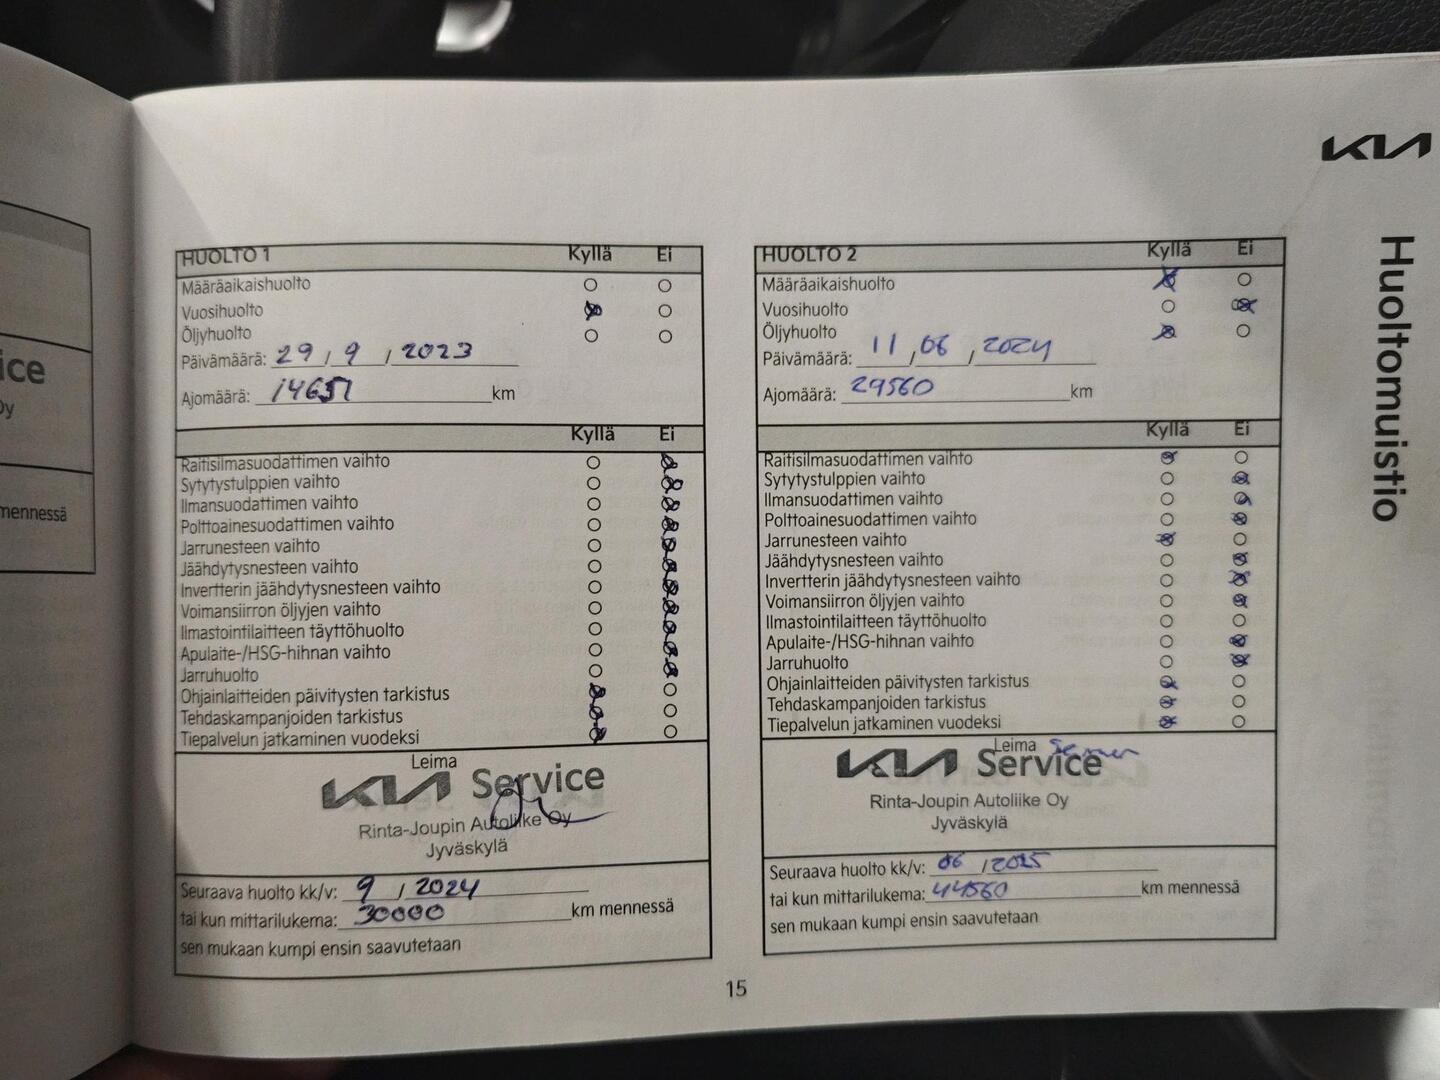 ice
Oy
mennessä
KIA
Huoltomuistio
HUOLTO 1 Kyllä Ei
Määräaikaishuolto
Vuosihuolto
Öljyhuolto
Päivämäärä: 29 / 9 / 2023
Ajomäärä: 14651 km
Kyllä Ei
Raitisilmasuodattimen vaihto
Sytytystulppien vaihto
Ilmansuodattimen vaihto
Polttoainesuodattimen vaihto
Jarrunesteen vaihto
Jäähdytysnesteen vaihto
Invertterin jäähdytysnesteen vaihto
Voimansiirron öljyjen vaihto
Ilmastointilaitteen täyttöhuolto
Apulaite-/HSG-hihnan vaihto
Jarruhuolto
Ohjainlaitteiden päivitysten tarkistus
Tehdaskampanjoiden tarkistus
Tiepalvelun jatkaminen vuodeksi
Leima
KIA Service
Rinta-Joupin Autoliike Oy
Jyväskylä
Seuraava huolto kk/v: 9 / 2024
tai kun mittarilukema: 30000 km mennessä
sen mukaan kumpi ensin saavutetaan
HUOLTO 2 Kyllä Ei
Määräaikaishuolto
Vuosihuolto
Öljyhuolto
Päivämäärä: 11 / 06 / 2024
Ajomäärä: 29560 km
Kyllä Ei
Raitisilmasuodattimen vaihto
Sytytystulppien vaihto
Ilmansuodattimen vaihto
Polttoainesuodattimen vaihto
Jarrunesteen vaihto
Jäähdytysnesteen vaihto
Invertterin jäähdytysnesteen vaihto
Voimansiirron öljyjen vaihto
Ilmastointilaitteen täyttöhuolto
Apulaite-/HSG-hihnan vaihto
Jarruhuolto
Ohjainlaitteiden päivitysten tarkistus
Tehdaskampanjoiden tarkistus
Tiepalvelun jatkaminen vuodeksi
Leima
KIA Service
Rinta-Joupin Autoliike Oy
Jyväskylä
Seuraava huolto kk/v: 06 / 2025
tai kun mittarilukema: 44560 km mennessä
sen mukaan kumpi ensin saavutetaan
15